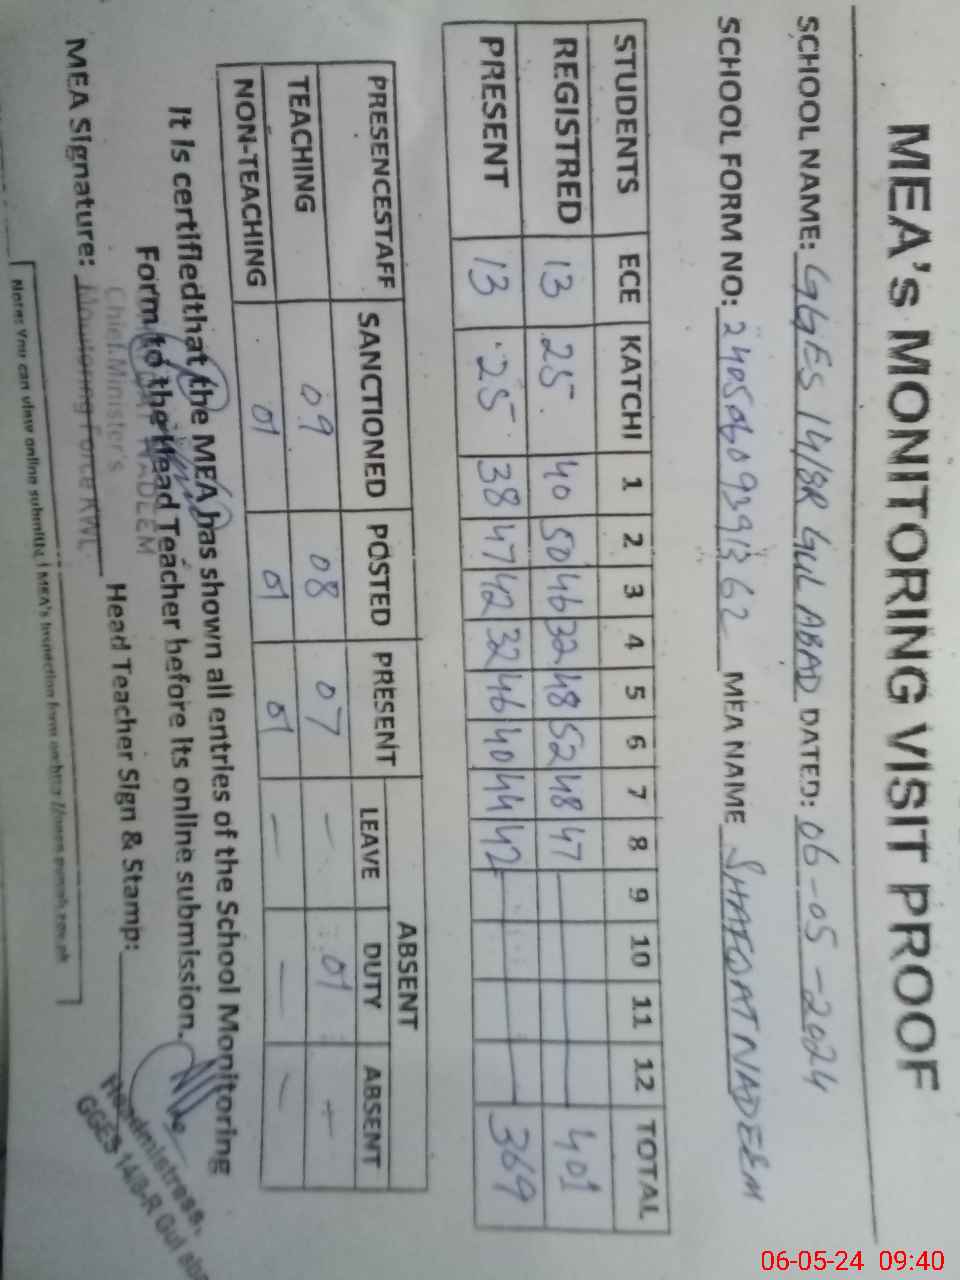 MEA's MONITORING VISIT PROOF
SCHOOL NAME: GGES 14/8R GUL ABAD DATED: 06-05-2024
SCHOOL FORM NO: MEA NAME SHAFQAT NADEEM
STUDENTS ECE KATCHI 1 2 3 4 5 6 7 8 9 10 11 12 TOTAL
REGISTRED 13 25 40 50 46 32 48 52 48 47 401
PRESENT 13 25 38 47 42 32 46 40 44 42 369
ABSENT
PRESENCESTAFF SANCTIONED POSTED PRESENT LEAVE DUTY ABSENT
TEACHING 09 08 07 - 01 -
NON-TEACHING 01 01 01 - - -
It is certifiedthat the MEA has shown all entries of the School Monitoring
Form to the Head Teacher before its online submission.
NADEEM
Chief Minister's
Monitoring Force KWL
MEA Signature: Head Teacher Sign & Stamp:
Headmistress,
GGES 14/8-R Gul
Note: You can view online submitted MEA's inspection form on
06-05-24 09:40